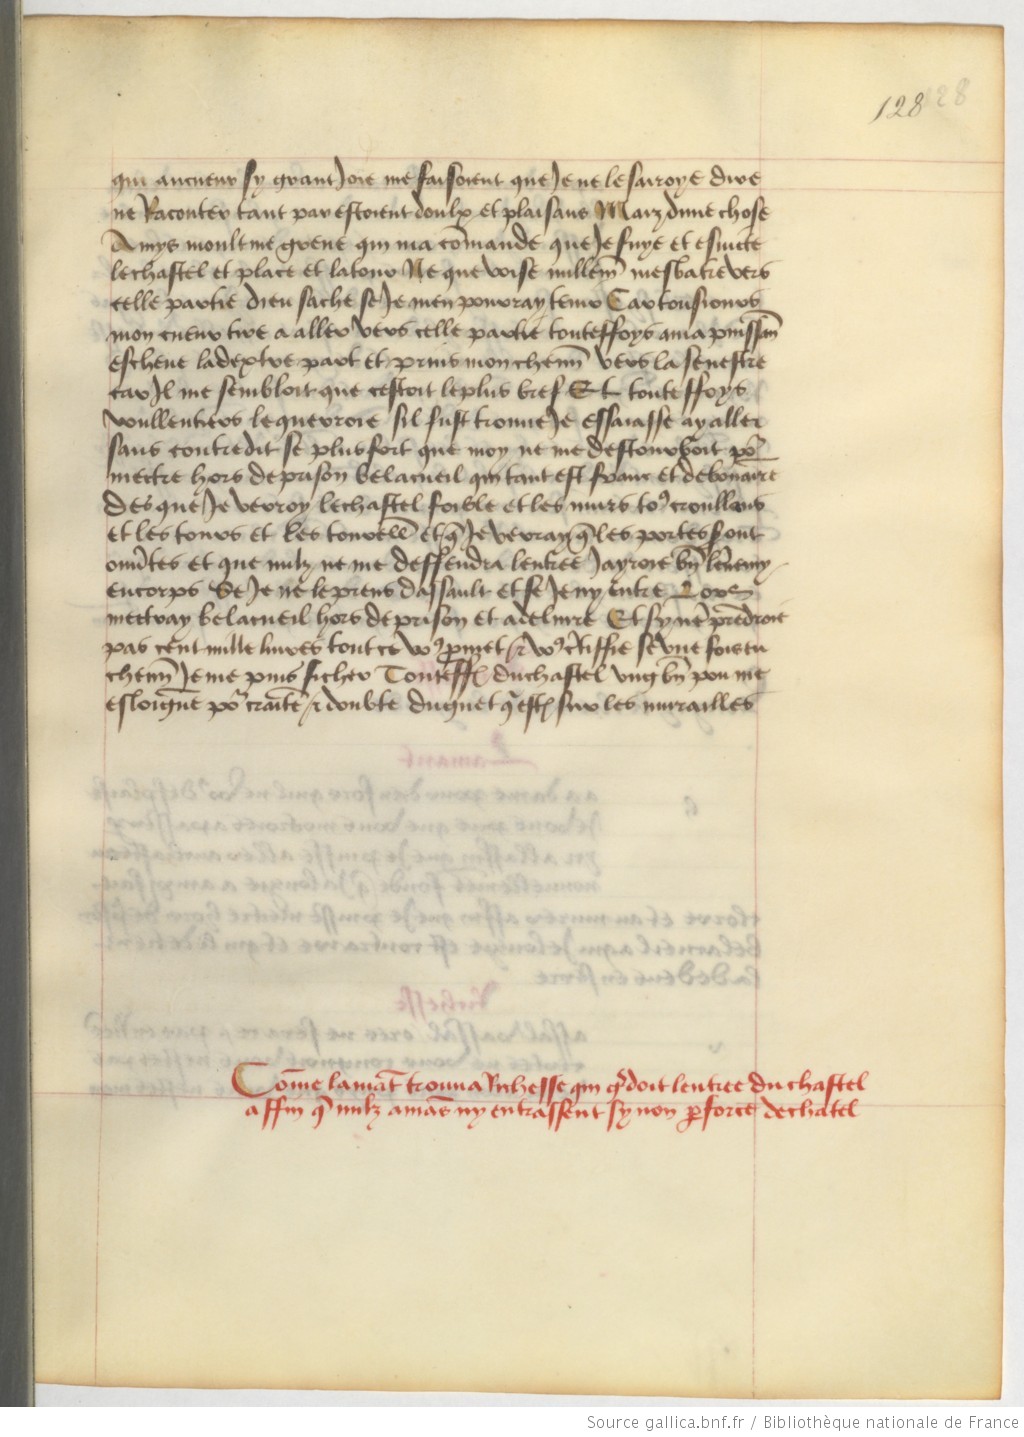 128 128
qui au cueur sy grant Joie me faisoient que Je ne le sairoye dire
ne Raconter tant par estoient doulx et plaisans Marz dune chose
Amys moult me greue qui ma cõmande que Je fuye et esuicte
le chastel et place et la tour Ne que voise nullem̃ mesbatre vers
celle partie dieu sache se Je men pourray tenir Car tousiours
mon cueur tire a aller vers celle partie touteffoys
escheue la dextre part et prins mon chem̃ vers la senestre
car Il me sembloit que cestoit le plus bref Et touteffoys
voullentiers le querroie sil fust trouue Je essaiasse a y aller
sans contredit se plus fort que moy ne me destourboit po᷑
mectre hors de prison belacueil qui tant est franc et debonaire
des que Je verroy le chastel foible et les murs to⁹ croullans
et les tours et les tourell̃ et q̃ Je verray q̃ les portes sont
ouu̾tes et que nulz ne me deffendra lentree Jayroie bñ lennemy
en corps Se Je ne le prens dassault et se Je ny entre Lors
mectray belacueil hors de prison et a deliure Et sy nẽ prẽdroie
pas cent mille liures tout ce vo⁹ ꝓmet ⁊ vo⁹ c̾tiffie se vne fois eu
chem̃ Je me puis ficher Touteff̃ du chastel vng bñ pou me
esloigne po᷑ crainte ⁊ doubte du guet q̃ est sur les murailles
Cõme lamãt trouua Richesse qui g̾doit lentree du chastel
affin q̃ nulz amãs ny entrassent sy non ꝑ force de chatel
Source gallica.bnf.fr / Bibliothèque nationale de France